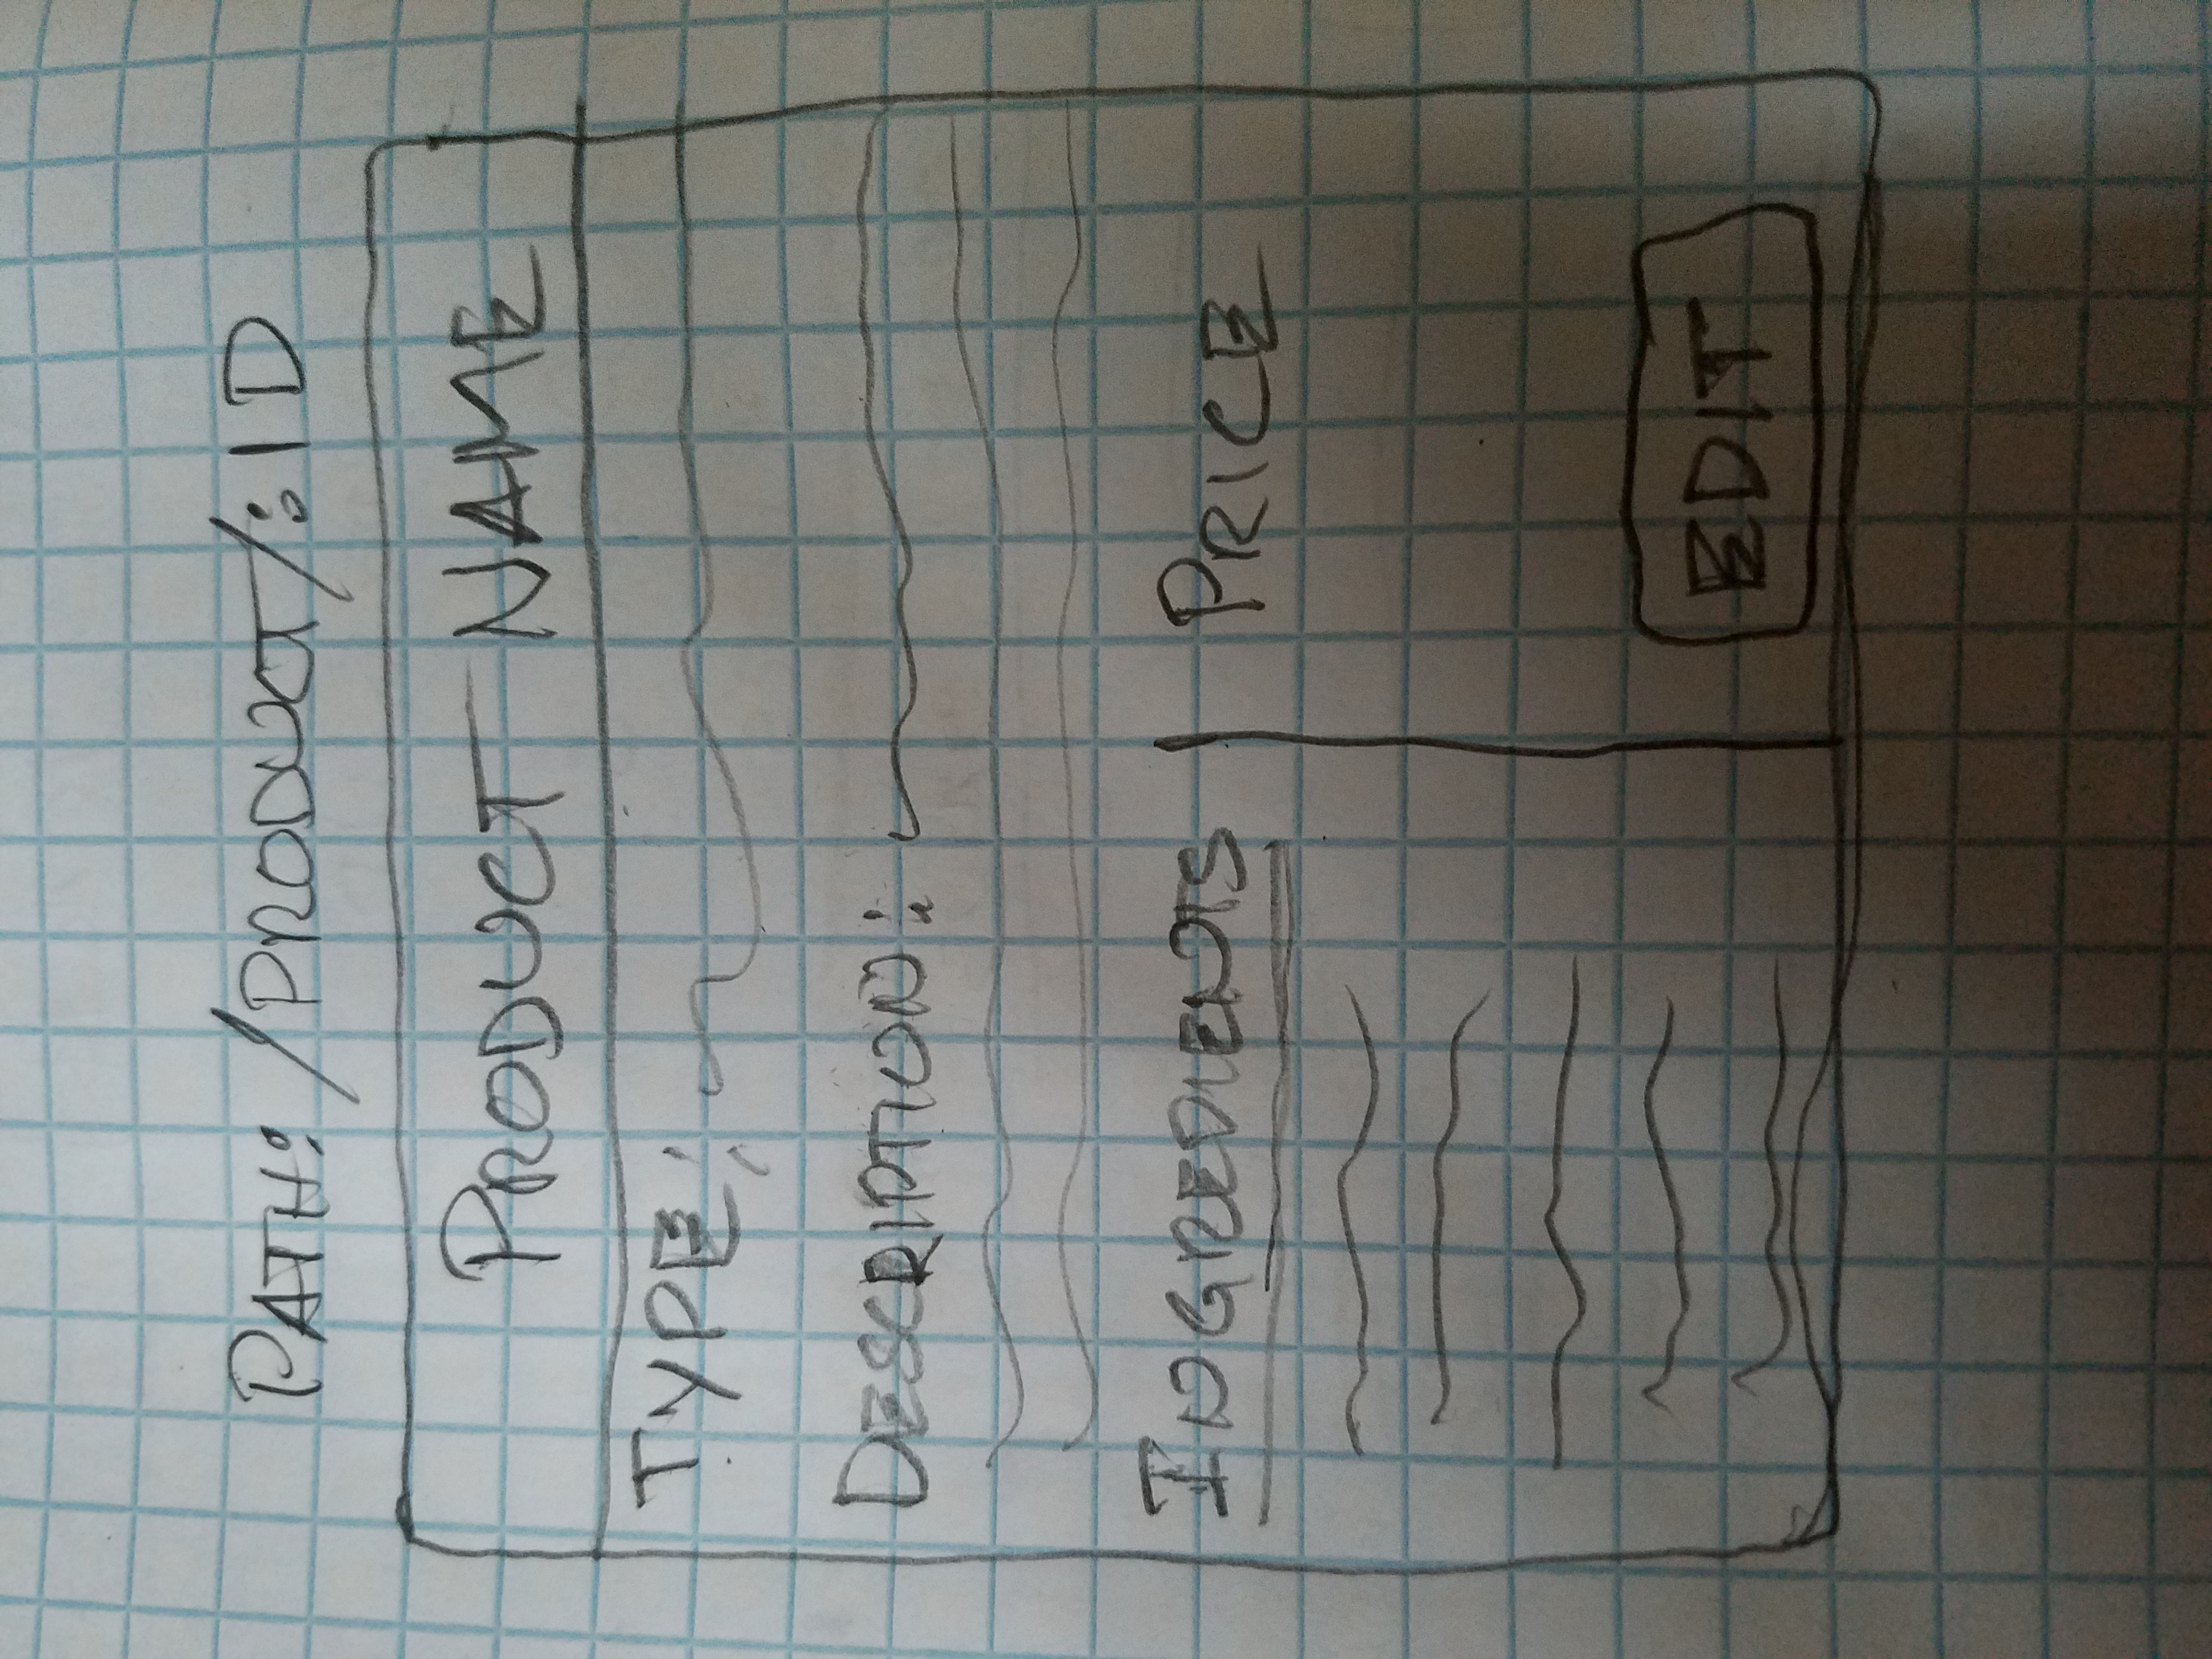 PATH: /PRODUCT/:ID
PRODUCT NAME
TYPE:
DESCRIPTION:
INGREDIENTS
PRICE
EDIT